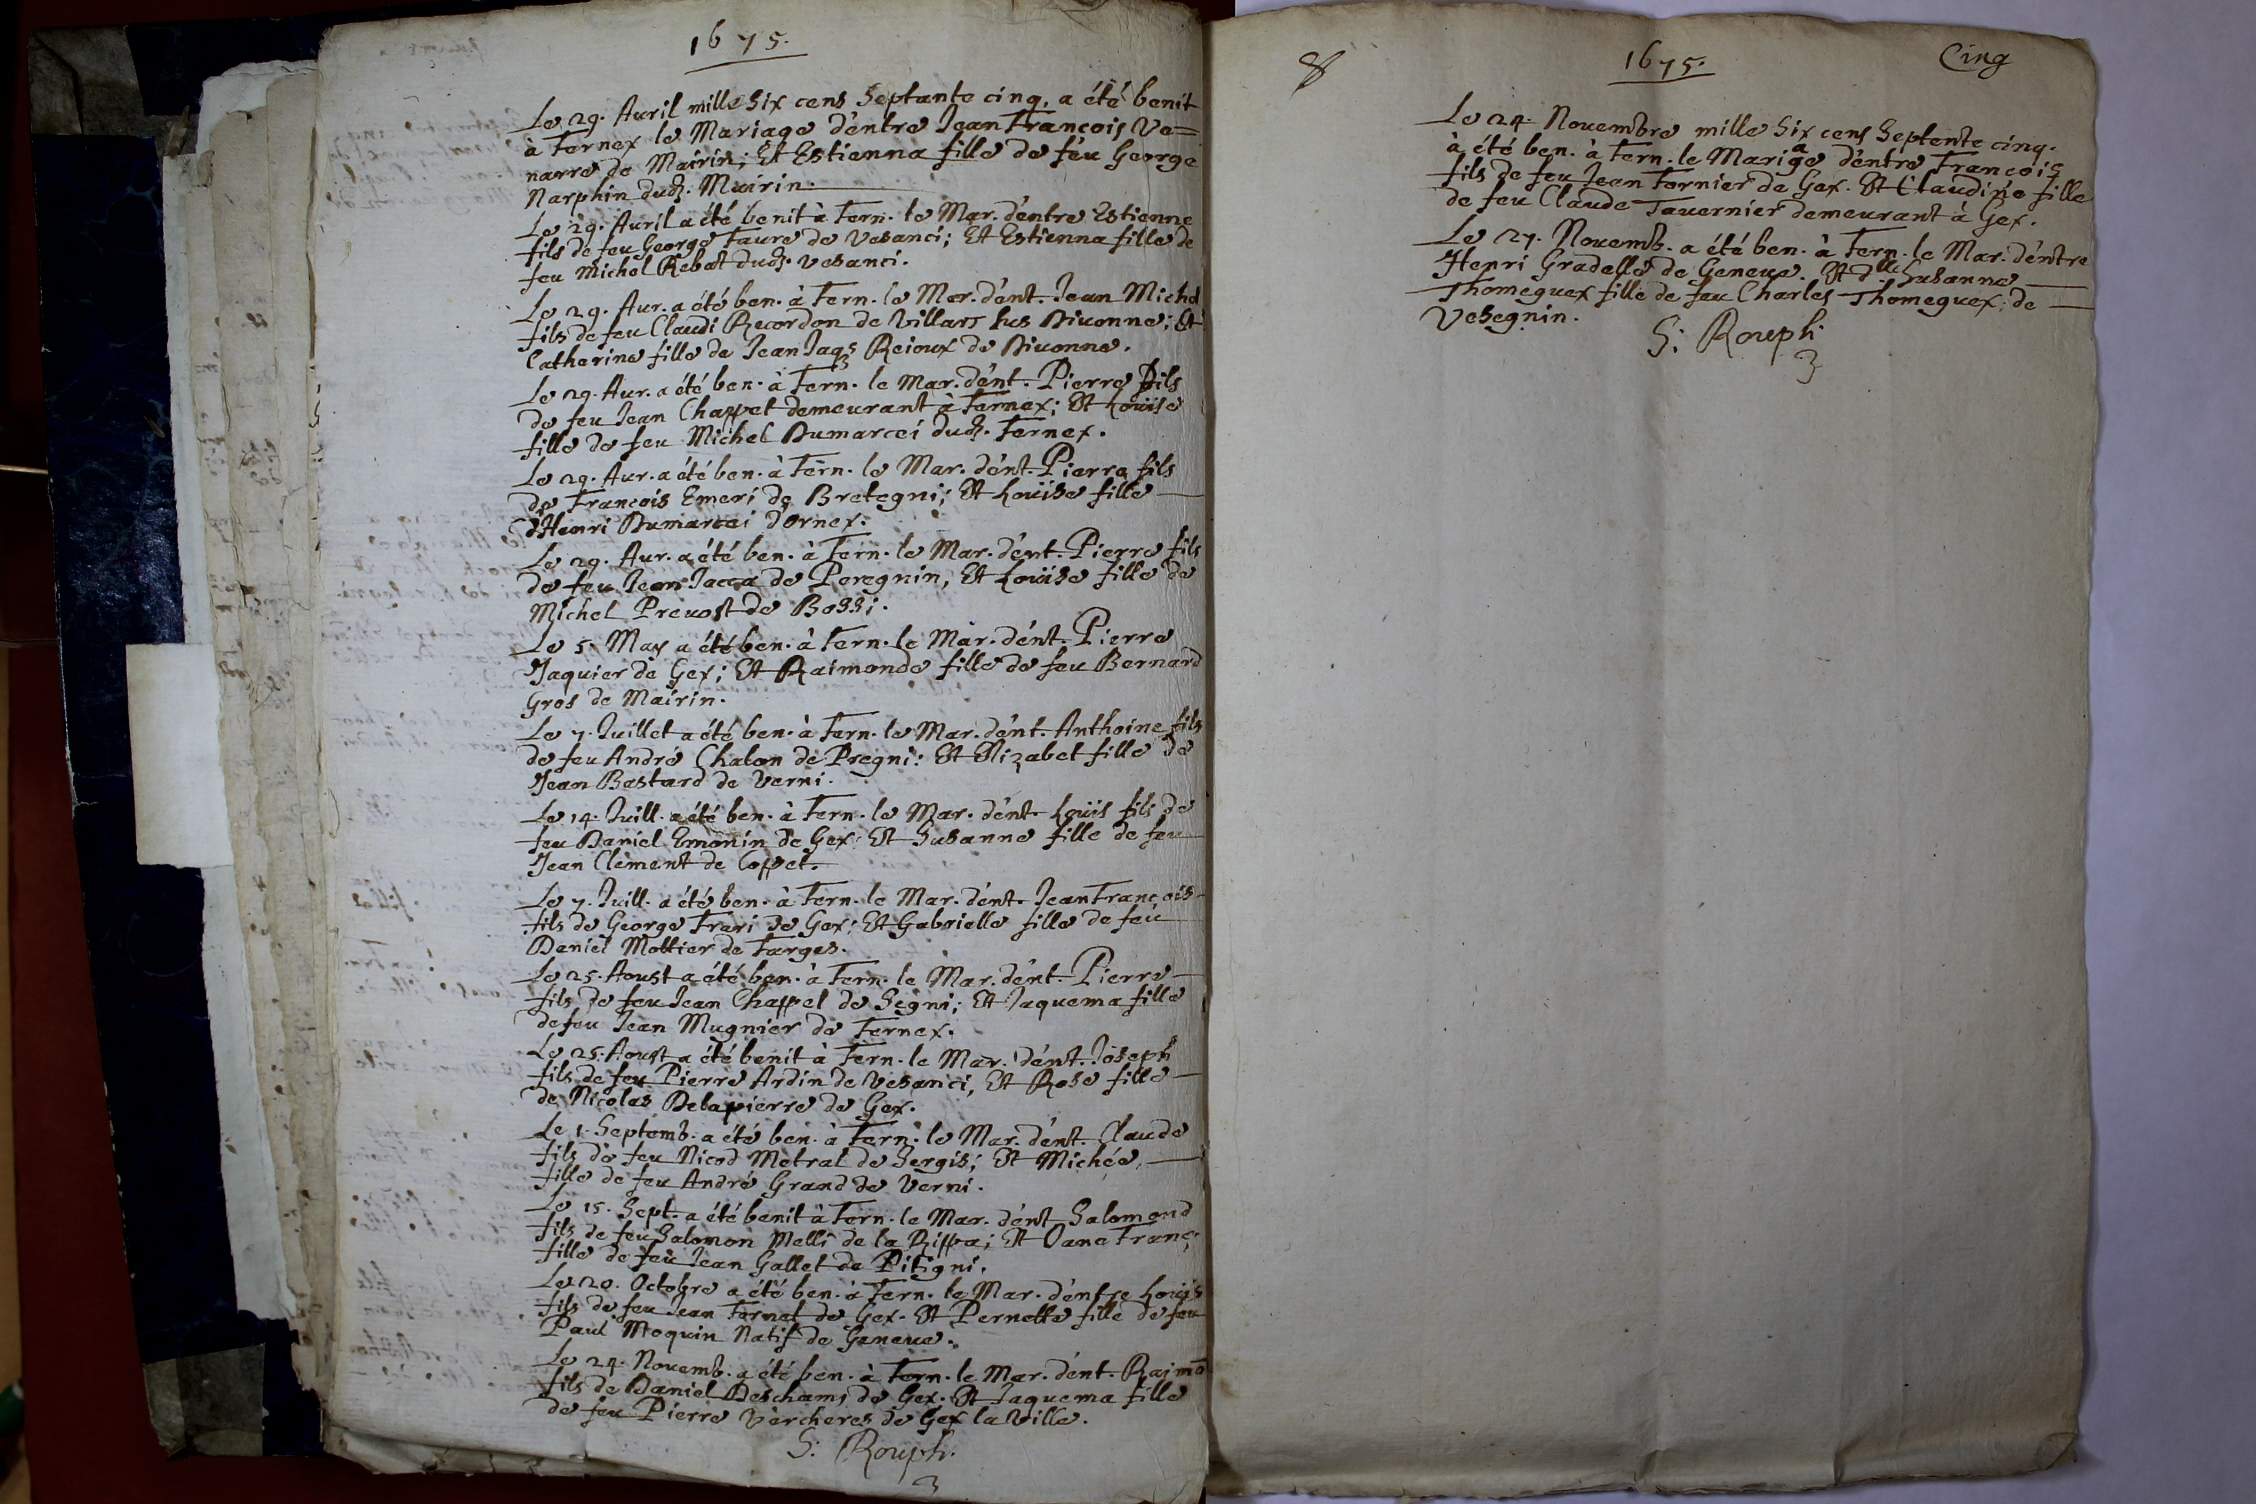 1675.
Le 29. Auril mille Six cens Septante cinq, a été benit
à Fernex le Mariage d'entre Jean François Ve=
narre de Mairin; Et Estienna fille de feu George
Narphin dud. Mairin.
Le 29. Auril a été benit à Fern. le Mar. d'entre Estienne
fils de feu George Faure de Vesanci; Et Estienna fille de
feu Michel Rebat dud. Vesanci.
Le 29. Aur. a été ben. à Fern. le Mar. d'ent. Jean Michel
fils de feu Claudi Recordon de Villars sus Diuonne; Et
Catherine fille de Jean Jaqs Reioux de Diuonne.
Le 29. Aur. a été ben. à Fern. le Mar. d'ent. Pierre fils
de feu Jean Chappet demeurant à Fernex; Et Louïse
fille de feu Michel Dumarcei dud. Fernex.
Le 29. Aur. a été ben. à Fern. le Mar. d'ent. Pierre fils
de François Emeri de Bretegni; Et Louïse fille
d'Henri Dumartai d'Ornex.
Le 29. Aur. a été ben. à Fern. le Mar. d'ent. Pierre fils
de feu Jean Jacca de Peregnin, Et Louïse fille de
Michel Preuost de Bossi.
Le 5. May a été ben. à Fern. le Mar. d'ent. Pierre
Jaquier de Gex; Et Raimonde fille de feu Bernard
Gros de Mairin.
Le 7. Juillet a été ben. à Fern. le Mar. d'ent. Anthoine fils
de feu André Chalon de Pregni: Et Elizabet fille de
Jean Bastard de Verni.
Le 14. Juill. a été ben. à Fern. le Mar. d'ent. Louïs fils de
feu Daniel Emonin de Gex; Et Susanne fille de feu
Jean Clement de Coppet.
Le 7. Juill. a été ben. à Fern. le Mar. d'ent. Jean François
fils de George Frari de Gex; Et Gabrielle fille de feu
Daniel Mottier de Farges.
Le 25. Aoust a été ben. à Fern. le Mar. d'ent. Pierre
fils de feu Jean Chappel de Segni; Et Jaquema fille
de feu Jean Mugnier de Fernex.
Le 25. Aoust a été benit à Fern. le Mar. d'ent. Joseph
fils de feu Pierre Ardin de Vesanci, Et Rose fille
de Nicolas Delapierre de Gex.
Le 1. Septemb. a été ben. à Fern. le Mar. d'ent. Claude
fils de feu Nicod Metral de Sergis; Et Michée,
fille de feu André Grand de Verni.
Le 15. Sept. a été benit à Fern. le Mar. d'ent. Salomond
fils de feu Salomon Melli de la Rippa; Et Oana Franç.
fille de feu Jean Gallet de Pitigni.
Le 20. Octobre a été ben. à Fern. le Mar. d'entre Louïs
fils de feu Jean Fornet de Gex. Et Pernette fille de feu
Paul Moquin Natif de Geneue.
Le 24. Nouemb. a été ben. à Fern. le Mar. d'ent. Raimō
fils de Daniel Deschams de Gex. Et Jaquema fille
de feu Pierre Vercheres de Gex la Ville.
S: Rouph.
8
1675.
Cinq
Le 24. Nouembre mille Six cens Septente cinq.
à été ben. à Fern. le Mariage d'entre François
fils de feu Jean Fornier de Gex. Et Claudine fille
de feu Claude Tauernier demeurant à Gex.
Le 27. Nouemb. a été ben. à Fern. le Mar. d'entre
Henri Gradelle de Geneue. Et dlle Susanne
Thomeguex fille de feu Charles Thomeguex de
Vesegnin.
S: Rouph